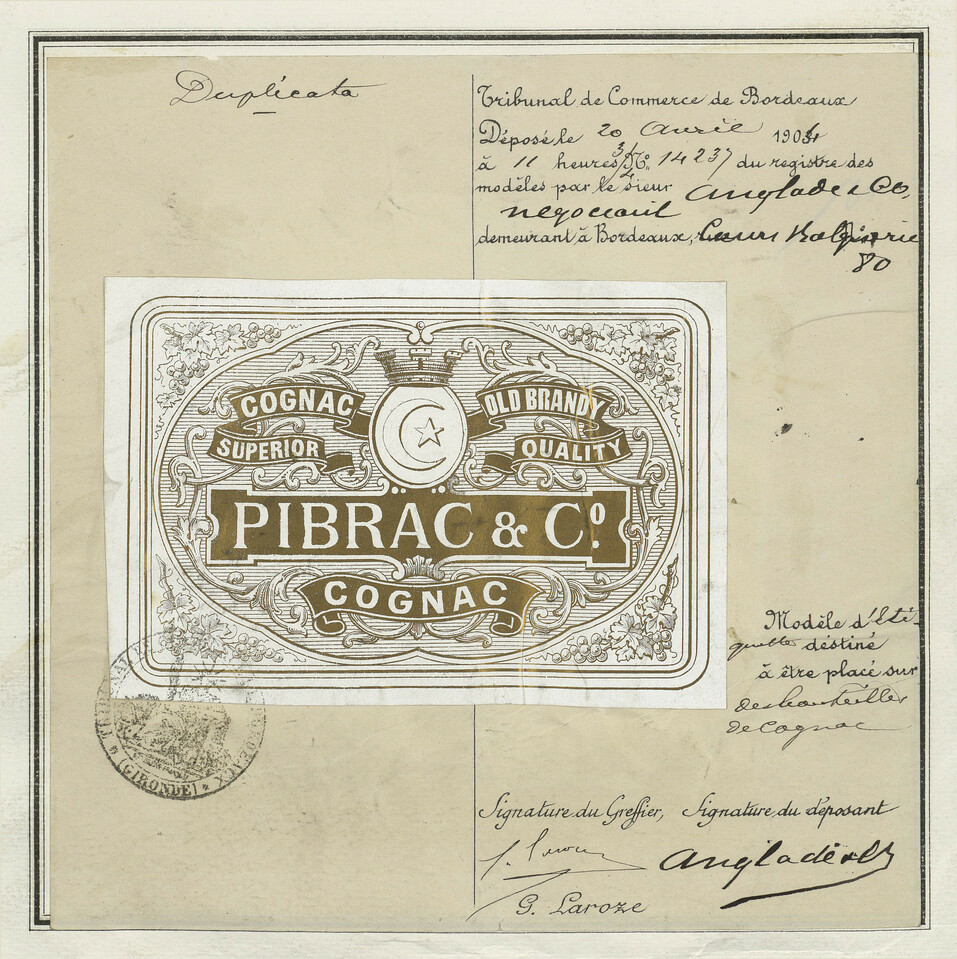 Duplicata
Tribunal de Commerce de Bordeaux
Déposé le 20 Avril 1904
à 11 heures 3/4 No. 14237 du registre des
modèles par le sieur Anglade & Co,
negociant
demeurant à Bordeaux, Cours Balguerie
80
COGNAC OLD BRANDY
SUPERIOR QUALITY
PIBRAC & Co.
COGNAC
Modèle d'éti-
quette déstiné
à être placé sur
des bouteilles
de Cognac
(GIRONDE)
Signature du Greffier, Signature du déposant
Anglade & Co
G. Laroze